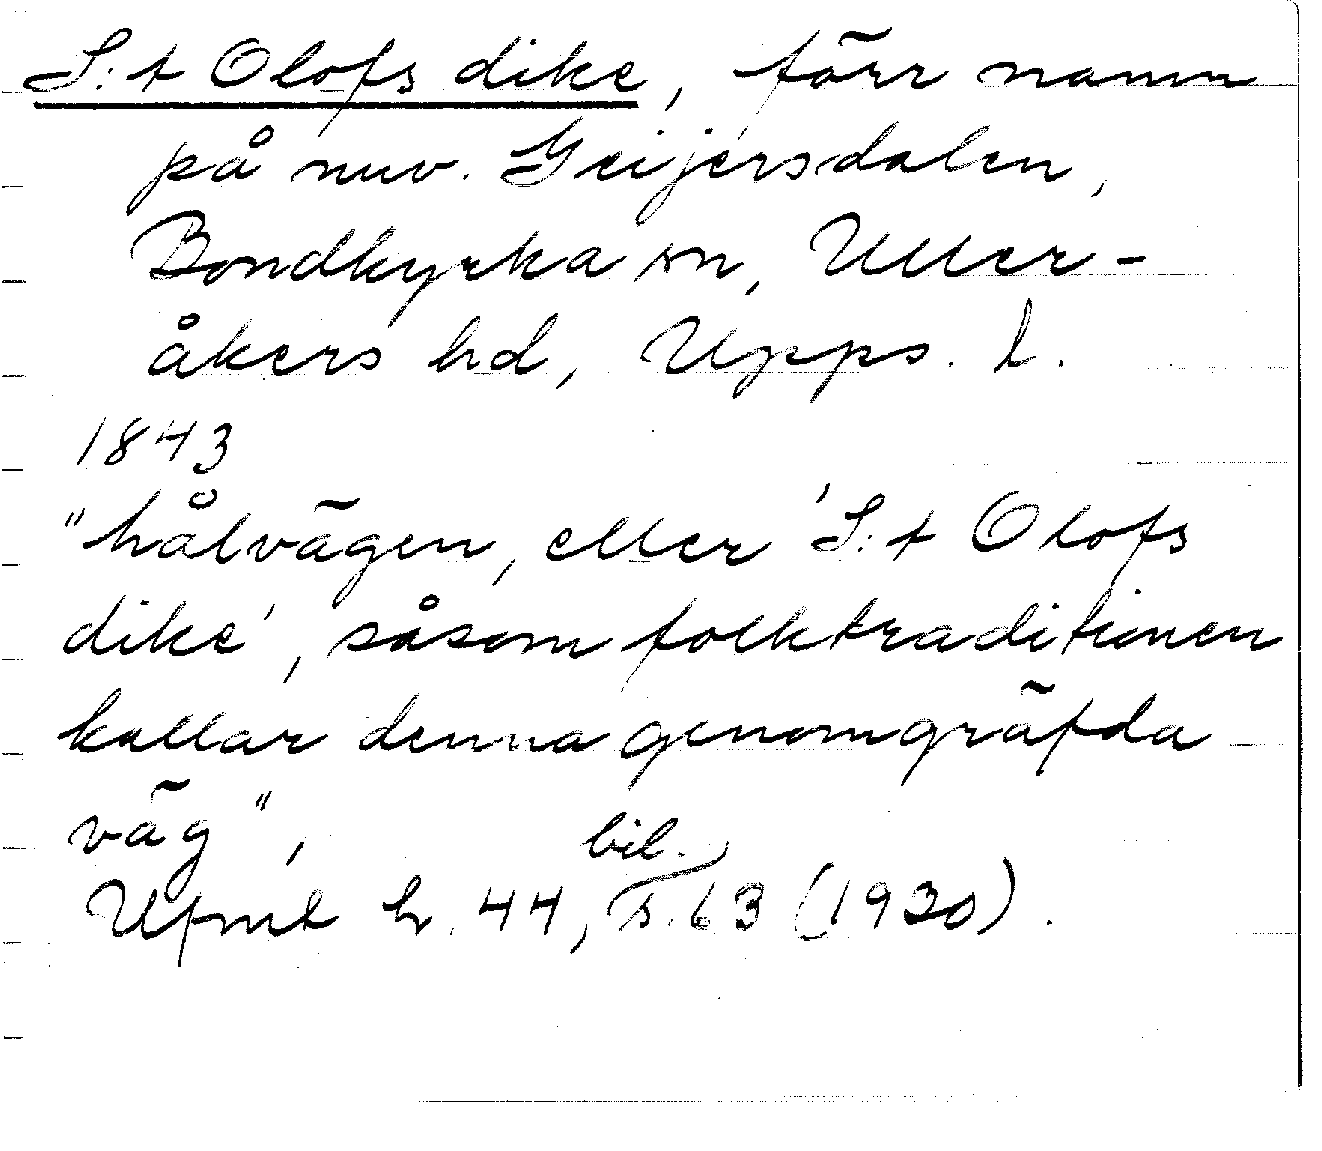 S:t Olofs dike, förr namn
på nuv. Geijersdalen,
Bondkyrka sn, Uller-
åkers hd, Upps. l.
1843
"hålvägen, eller 'S:t Olofs
dike', såsom folktraditionen
kallar denna genomgräfda
väg",
Upml h. 44, bil. s. 63 (1930).